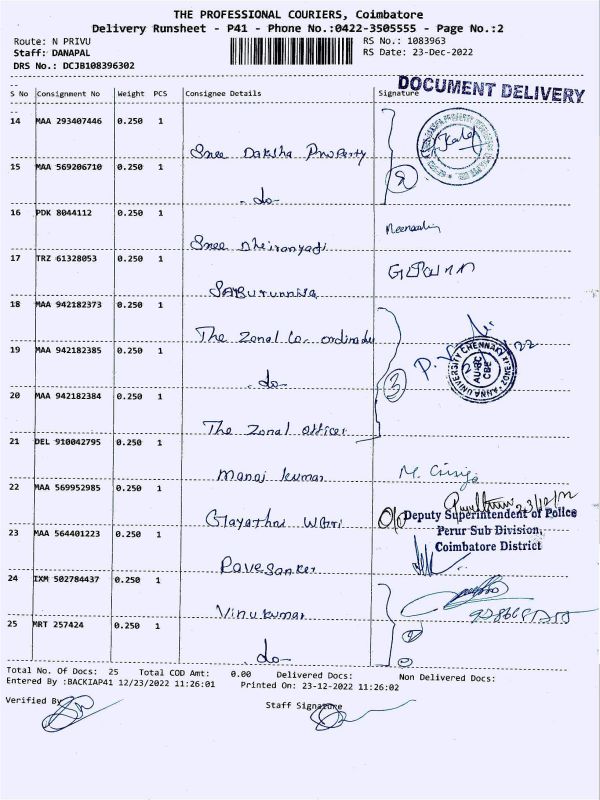 THE PROFESSIONAL COURIERS, Coimbatore
Delivery Runsheet - P41 - Phone No.:0422-3505555 - Page No.:2
Route: N PRIVU RS No.: 1083963
Staff: DANAPAL RS Date: 23-Dec-2022
DRS No.: DCJB108396302
DOCUMENT DELIVERY
S No Consignment No Weight PCS Consignee Details Signature
14 MAA 293407446 0.250 1
Sree Daksha Property
15 MAA 569206710 0.250 1
- do -
2
16 PDK 8044112 0.250 1
Sree
17 TRZ 61328053 0.250 1
Saburunnisa
18 MAA 942182373 0.250 1
The Zonal Co-ordinator
19 MAA 942182385 0.250 1
- do -
3
20 MAA 942182384 0.250 1
The Zonal officer
21 DEL 910042795 0.250 1
Manoj kumar
22 MAA 569952985 0.250 1
23/12/22
O/o Deputy Superintendent of Police
Perur Sub Division,
Coimbatore District
23 MAA 564401223 0.250 1
24 IXM 502784437 0.250 1
Vinukumar
25 MRT 257424 0.250 1
- do -
Total No. Of Docs: 25 Total COD Amt: 0.00 Delivered Docs: Non Delivered Docs:
Entered By :BACKIAP41 12/23/2022 11:26:01 Printed On: 23-12-2022 11:26:02
Verified By
Staff Signature